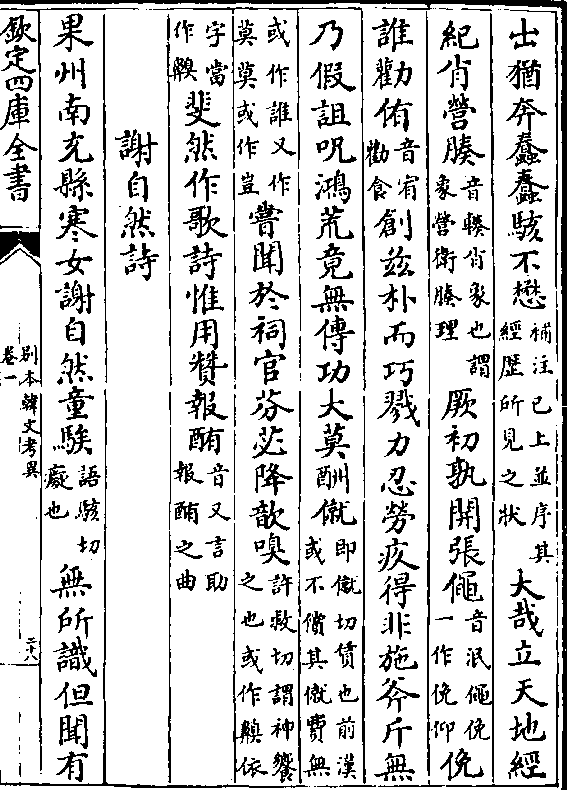 士猶奔蠢蠢駭不懋補注已上並序其經歴所見之状大哉立天地經
紀肖營腠音輳肖象也謂象營衛腠理厥初孰開張僶音泯僶俛一作俛仰俛
誰勸侑音宥勸食創兹朴而巧戮力忍勞疚得非施斧斤無
乃假詛呪鴻荒竟無傳功大莫酬僦即僦切賃也前漢或不償其僦費無
或作誰又作莫莫或作豈嘗聞於祠官芬苾降歆嗅許救切謂神饗之也或作齅依
字當作齅斐然作歌詩惟用贊報酭音又言助報酭之曲
謝自然詩
果州南充縣寒女謝自然童騃語駭切癡也無所識但聞有
欽定四庫全書
別本韓文考異
卷一
二十八